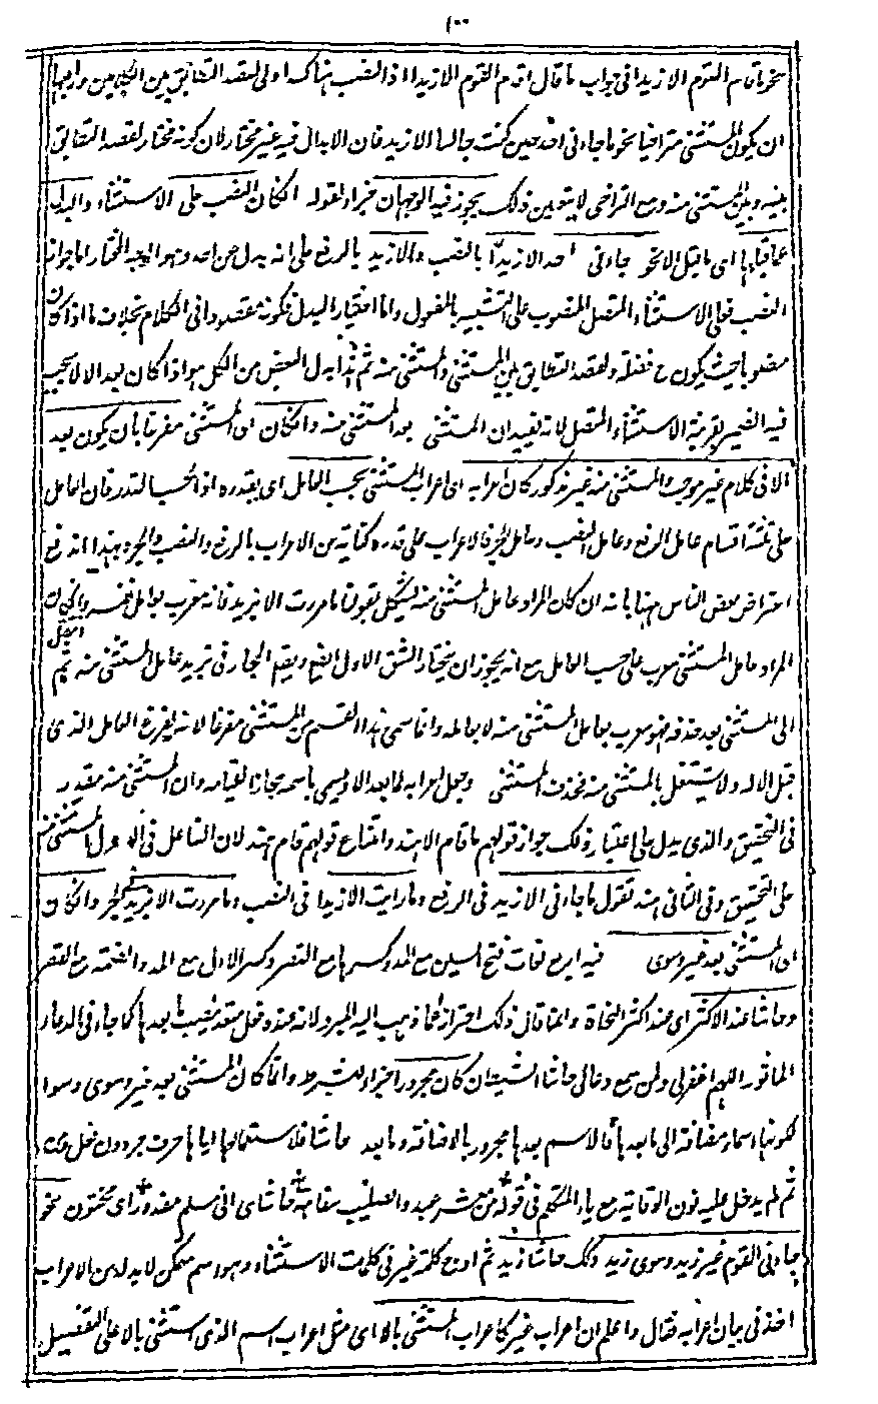 ١٠٠
نحو ما قام القوم الا زيدا فى جواب ما قال اقام القوم الا زيدا اذ النصب هناك اولى لقصد التطابق بين الكلامين ورابعها
ان يكون المستثنى متراخيا نحو ما جاءنى احد حين كنت جالسا الا زيد فان الابدال فيه غير مختار لان كونه مختار لقصد التطابق
بينه وبين المستثنى منه ومع التراخى لا يتبين ذلك يجوز فيه الوجهان خبر لقوله انكان النصب على الاستثناء والبدل
عما قبلها اى ما قبل الا نحو جاءنى احد الا زيدًا بالنصب والا زيد بالرفع على انه بدل من احد وهو الوجه المختار اما جواز
النصب فعلى الاستثناء المتصل المنصوب على التشبيه بالمفعول واما اختيار البدل فلكونه مقصودا فى الكلام بخلاف ما اذا كان
منصوبا حيث يكون ح فضلة ولقصد التطابق بين المستثنى والمستثنى منه ثم هذا بدل البعض من الكل هو اذا كان بعد الا لا يجب
فيه الضمير لقرينة الاستثناء المتصل لانه يفيد ان المستثنى بعد المستثنى منه وانكان اى المستثنى مفرغا بان يكون بعد
الا فى كلام غير موجب والمستثنى منه غير مذكور كان اعرابه اى اعراب المستثنى بحسب العامل اى بقدره اذ الحسب القدر فان العامل
على ثلثة اقسام عامل الرفع وعامل النصب وعامل الجر فالاعراب على قدره كناية عن الاعراب بالرفع والنصب والجر وبهذا اندفع
اعتراض بعض الناس ههنا بانه ان كان المراد عامل المستثنى منه يشكل بقولنا ما مررت الا بزيد فانه معرب بعامل نفسه وان كان
المراد عامل المستثنى معرب على حسب العامل مع انه يجوز ان يختار الشق الاول الصحيح ويقع الجار فى بزيد عامل المستثنى منه ثم انتقل
الى المستثنى بعد حذفه فهو معرب بعامل المستثنى منه لا بعامله وانما سمى هذا القسم من المستثنى مفرغا لانه يفرغ العامل الذى
قبل الا له ولا يشتغل بالمستثنى منه فحذف المستثنى وجعل اعرابه لما بعد الا ويسمى باسمه مجازا لقيامه وان المستثنى منه مقدر
فى التحقيق والذى يدل على اعتبار ذلك جواز قولهم ما قام الا هند وامتناع قولهم قام هند لان الفاعل فى الاول المستثنى منه
على التحقيق وفى الثانى هند تقول ما جاءنى الا زيد فى الرفع وما رايت الا زيدا فى النصب وما مررت الا بزيد فى الجر وانكان
اى المستثنى بعد غير وسوى فيه اربع لغات فتح السين مع المد وكسرها مع القصر وكسر الاول مع المد والضمة مع القصر
وحاشا عند الاكثر اى عند اكثر النحاة وانما قال ذلك احتراز عما ذهب اليه المبرد لانه عنده فعل متعد ينصب ما بعدها كما جاء فى الدعاء
الماثور اللهم اغفر لى ولمن سمع دعائى حاشا الشيطان كان مجرورا خبر للشرط وانما كان المستثنى بعد غير وسوى وسواء
لكونها اسماء مضافة الى ما بعدها فالاسم بعدها مجرور بالاضافة وما بعد حاشا فلاستعمالها اياها حرف جر دون فعل ومن
ثم لم يدخل عليه نون الوقاية مع ياء المتكلم فى قوله من معشر عبدوا الصليب سفاهة حاشاى انى مسلم معذور اى مختون نحو
جاءنى القوم غير زيد وسوى زيد وكذلك حاشا زيد ثم اورد كلمة غير فى كلمات الاستثناء وهو اسم متمكن لا بد له من الاعراب
اخذ فى بيان اعرابه فقال واعلم ان اعراب غير كاعراب المستثنى بالا اى مثل اعراب اسم الذى استثنى بالا على التفصيل